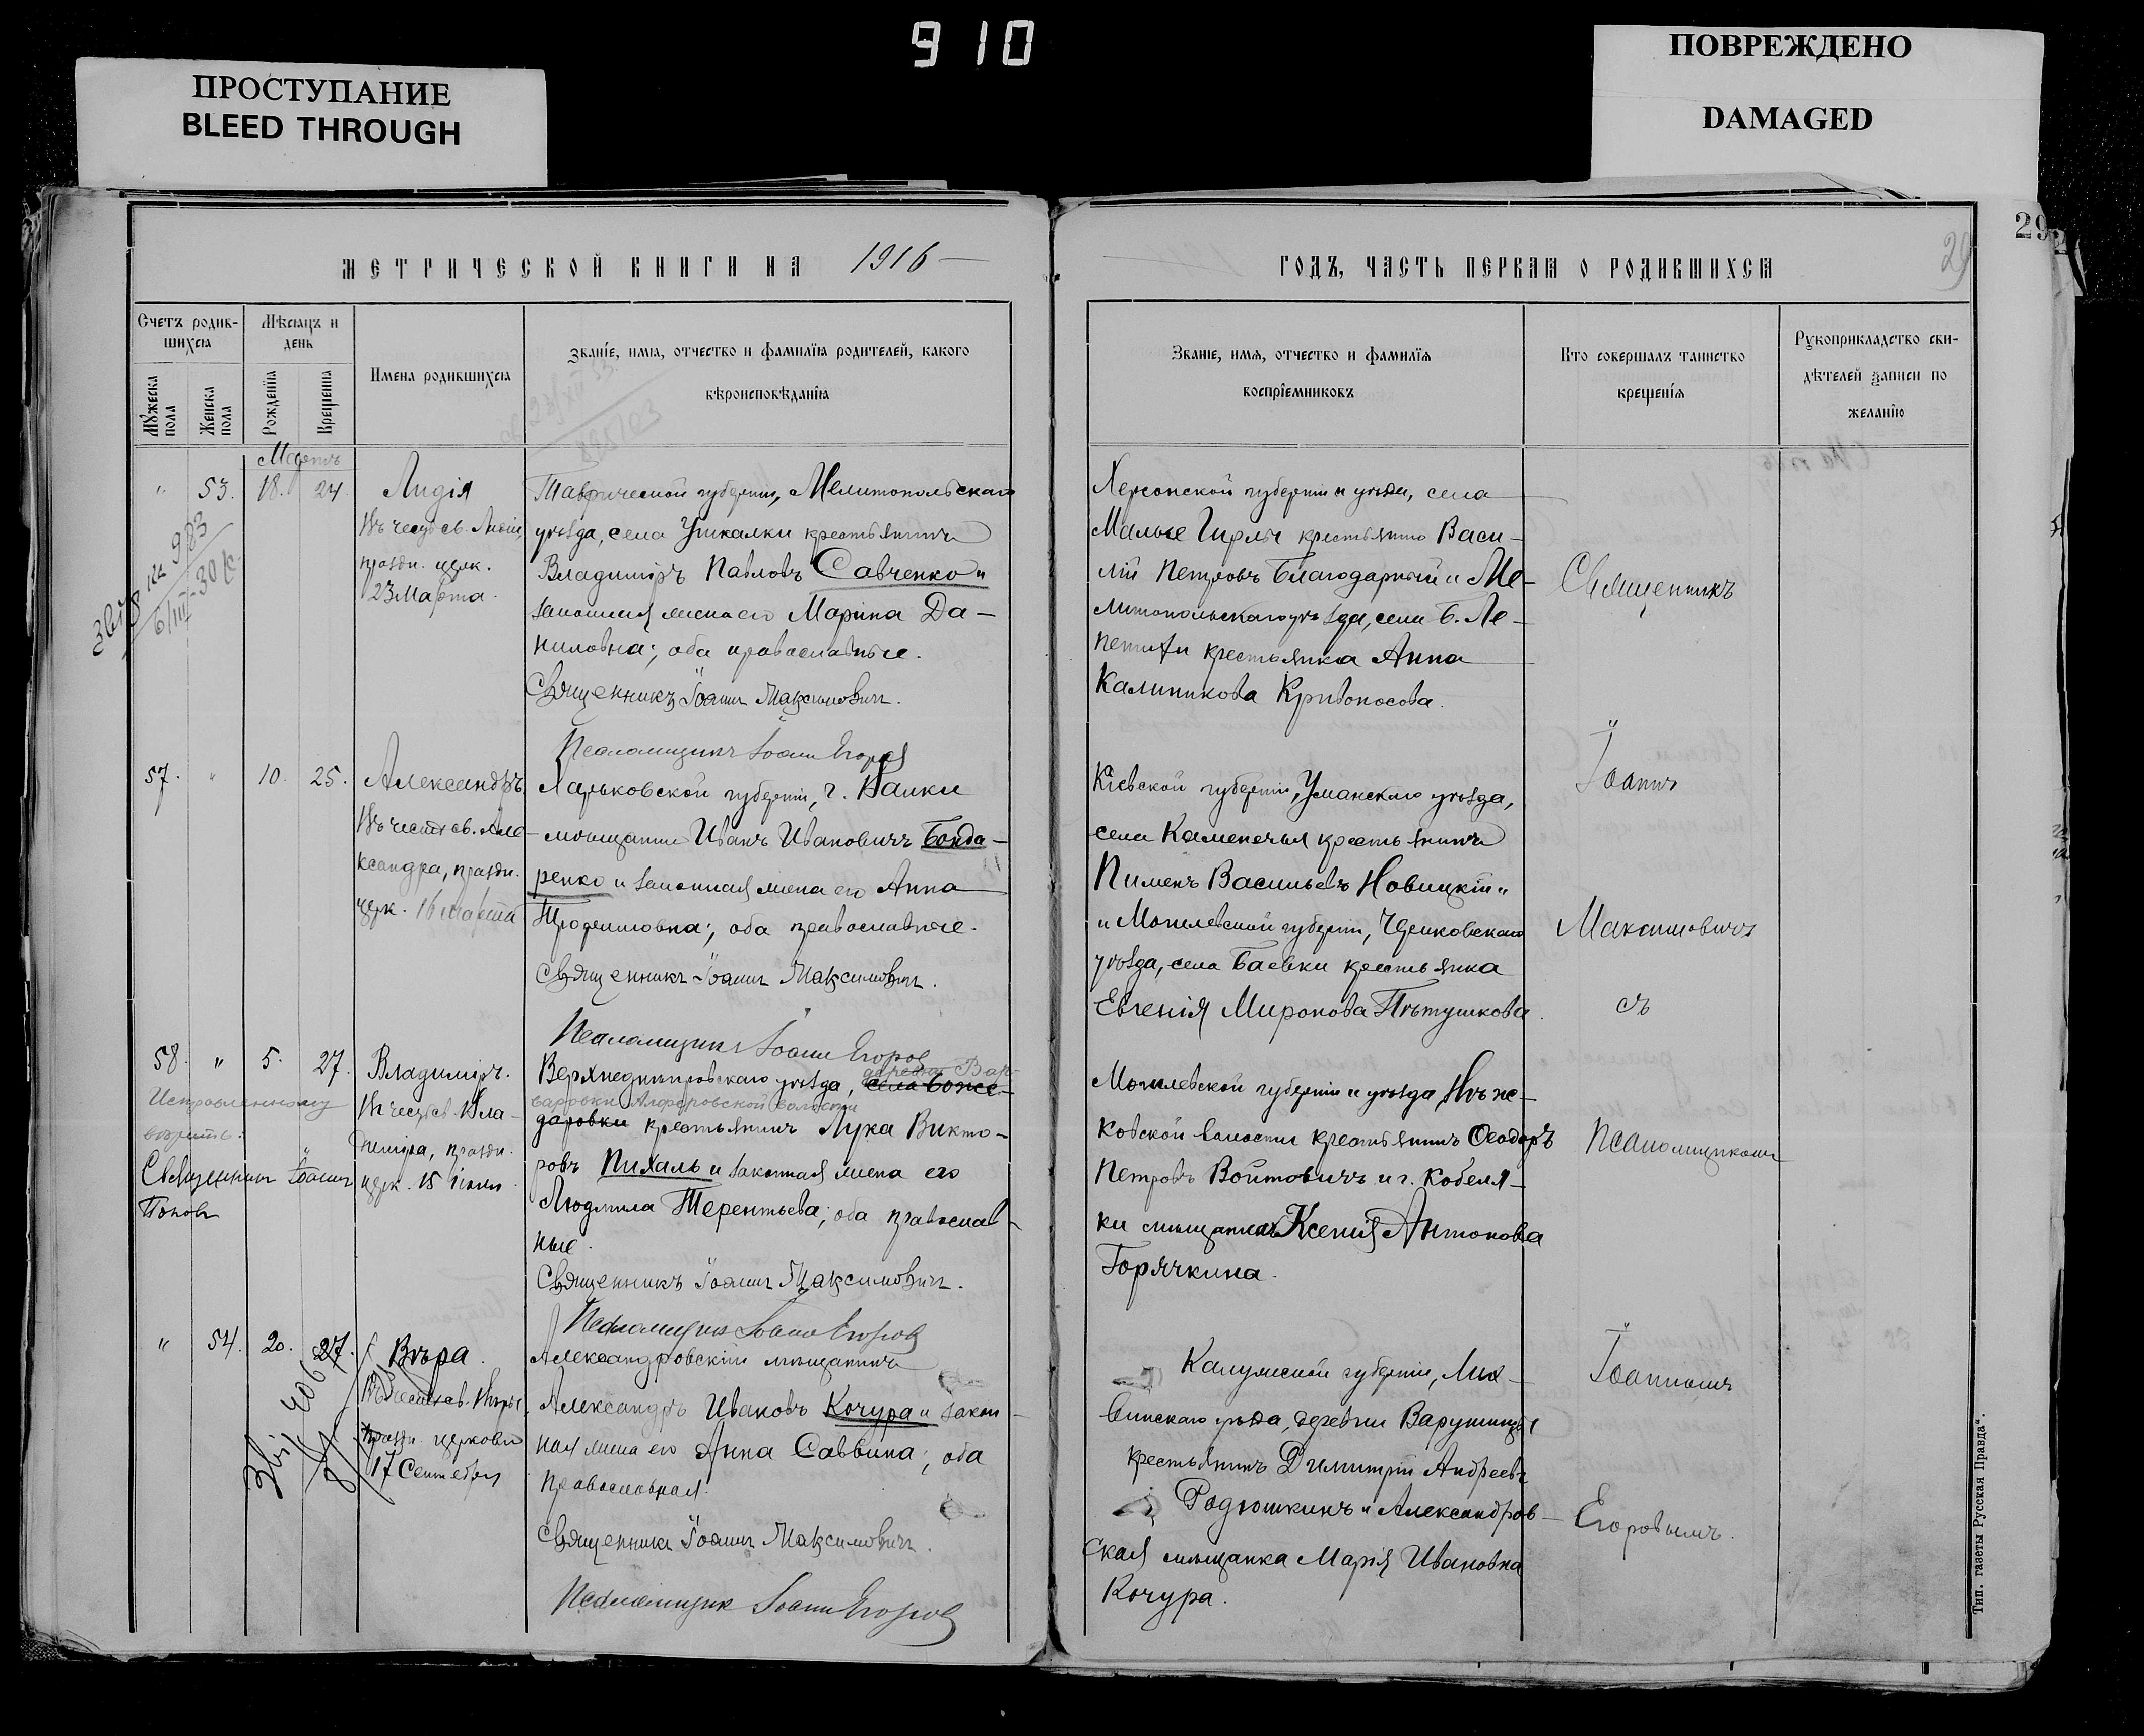 910
ПРОСТУПАНИЕ
BLEED THROUGH
ПОВРЕЖДЕНО
DAMAGED
29
29
МЕТРИЧЕСКОЙ КНИГИ НА 1916
Счетъ родив-
шихся
Мѣсяцъ и
день
Мужеска
пола
Женска
пола
Рожденія
Крещенія
Имена родившихся
Званіе, имя, отчество и фамилія родителей, какого
вѣроисповѣданія
Мартъ
" 53. 18. 24.
Лидія
Въ честь св. Лидіи,
праздн. церк.
23 Марта.
Таврической губерніи, Мелитопольскаго
уѣзда, села Ушкалки крестьянинъ
Владиміръ Павловъ Савченко и
законная жена его Марина Да-
ниловна; оба православные.
Священникъ Іоаннъ Максимовичъ.
Псаломщикъ Іоаннъ Егоровъ
57. " 10. 25.
Александръ
Въ честь св. Але-
ксандра, праздн.
церк. 16 марта
Харьковской губерніи, г. Валки
мѣщанинъ Иванъ Ивановичъ Бонда-
ренко и законная жена его Анна
Трофимовна; оба православные.
Священникъ Іоаннъ Максимовичъ.
Псаломщикъ Іоаннъ Егоровъ
58. " 5. 27.
Исправленному
вѣрить:
Священникъ Іоаннъ
Поповъ
Владиміръ.
Въ честь св. Вла-
диміра, праздн.
церк. 15 іюля
Верхнеднѣпровскаго уѣзда, села Боже-
деревни Вар-
варовки Алферовской волости
даровки крестьянинъ Лука Викто-
ровъ Пихаль и законная жена его
Людмила Терентьева; оба православ-
ные.
Священникъ Іоаннъ Максимовичъ.
Псаломщикъ Іоаннъ Егоровъ
" 54. 20. 27.
Вѣра.
Въ честь св. Вѣры,
праздн. церковью
17 Сентября
Александровскій мѣщанинъ
Александръ Ивановъ Кочура и закон-
ная жена его Анна Саввина; оба
православныя.
Священникъ Іоаннъ Максимовичъ.
Псаломщикъ Іоаннъ Егоровъ
ГОДЪ, ЧАСТЬ ПЕРВАЯ О РОДИВШИХСЯ
Званіе, имя, отчество и фамилія
воспріемниковъ
Кто совершалъ таинство
крещенія
Рукоприкладство сви-
дѣтелей записи по
желанію
Херсонской губерніи и уѣзда, села
Малые Гирлы крестьянинъ Васи-
лій Петровъ Благодарный и Ме-
литопольскаго уѣзда, села Б. Ле-
петихи крестьянка Анна
Калиникова Кривоносова.
Кіевской губерніи, Уманскаго уѣзда,
села Каменечья крестьянинъ
Пименъ Васильевъ Новицкій
и Могилевской губерніи, Чериковскаго
уѣзда, села Баевки крестьянка
Евгенія Миронова Пѣтушкова.
Могилевской губерніи и уѣзда,
ковской волости крестьянинъ Ѳеодоръ
Петровъ Войтовичъ и г. Кобеля-
ки мѣщанка Ксенія Антонова
Горячкина.
Калужской губерніи, Лих-
винскаго уѣзда, деревни
крестьянинъ Димитрій Андреевъ
Родюшкинъ и Александров-
ская мѣщанка Марія Ивановна
Кочура.
Священникъ
Іоаннъ
Максимовичъ
съ
Псаломщикомъ
Іоанномъ
Егоровымъ.
Тип. газеты Русская Правда".